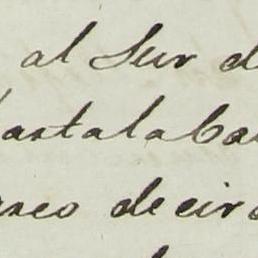 al Sur d
hasta la Ba
seo decir